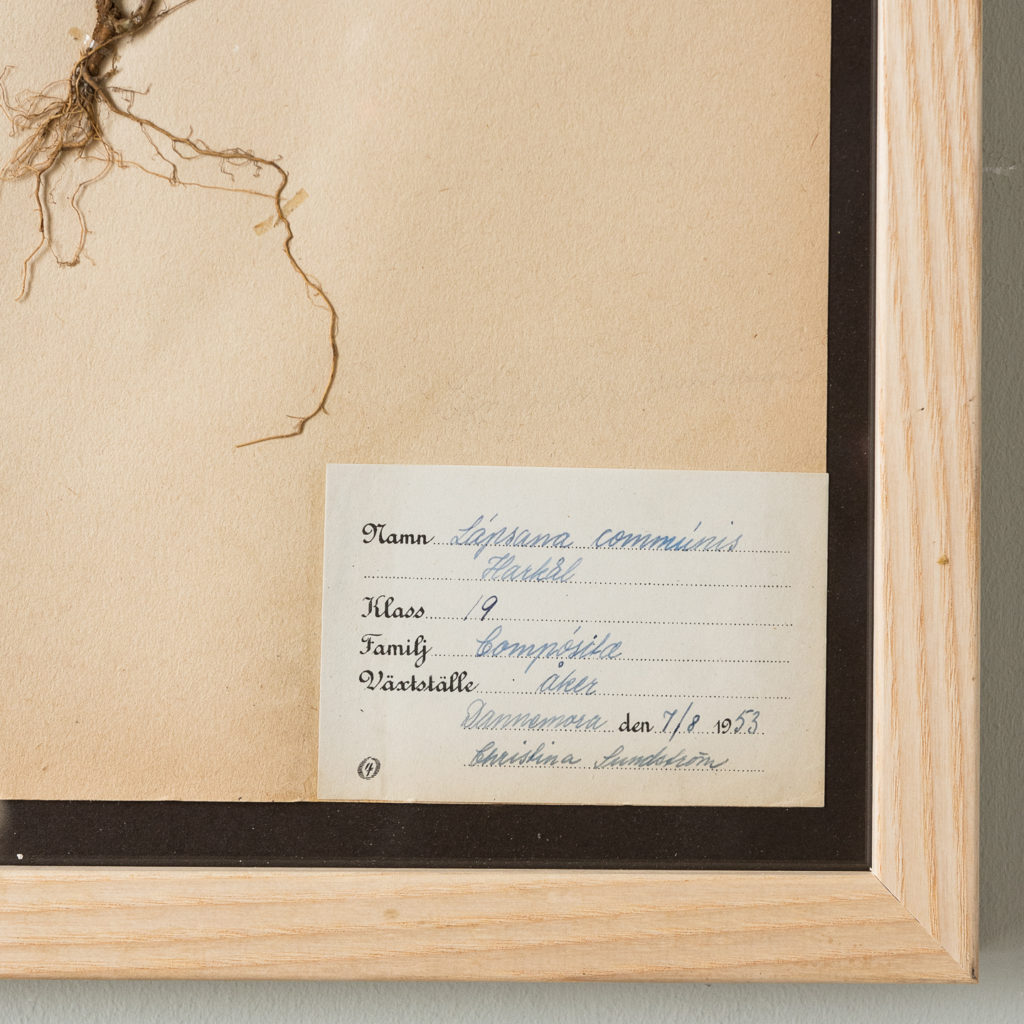 Namn Lápsana commúnis
Harkål
Klass 19
Familj Compósitæ
Växtställe åker
Dannemora den 7/8 1953
Christina Sundström
4